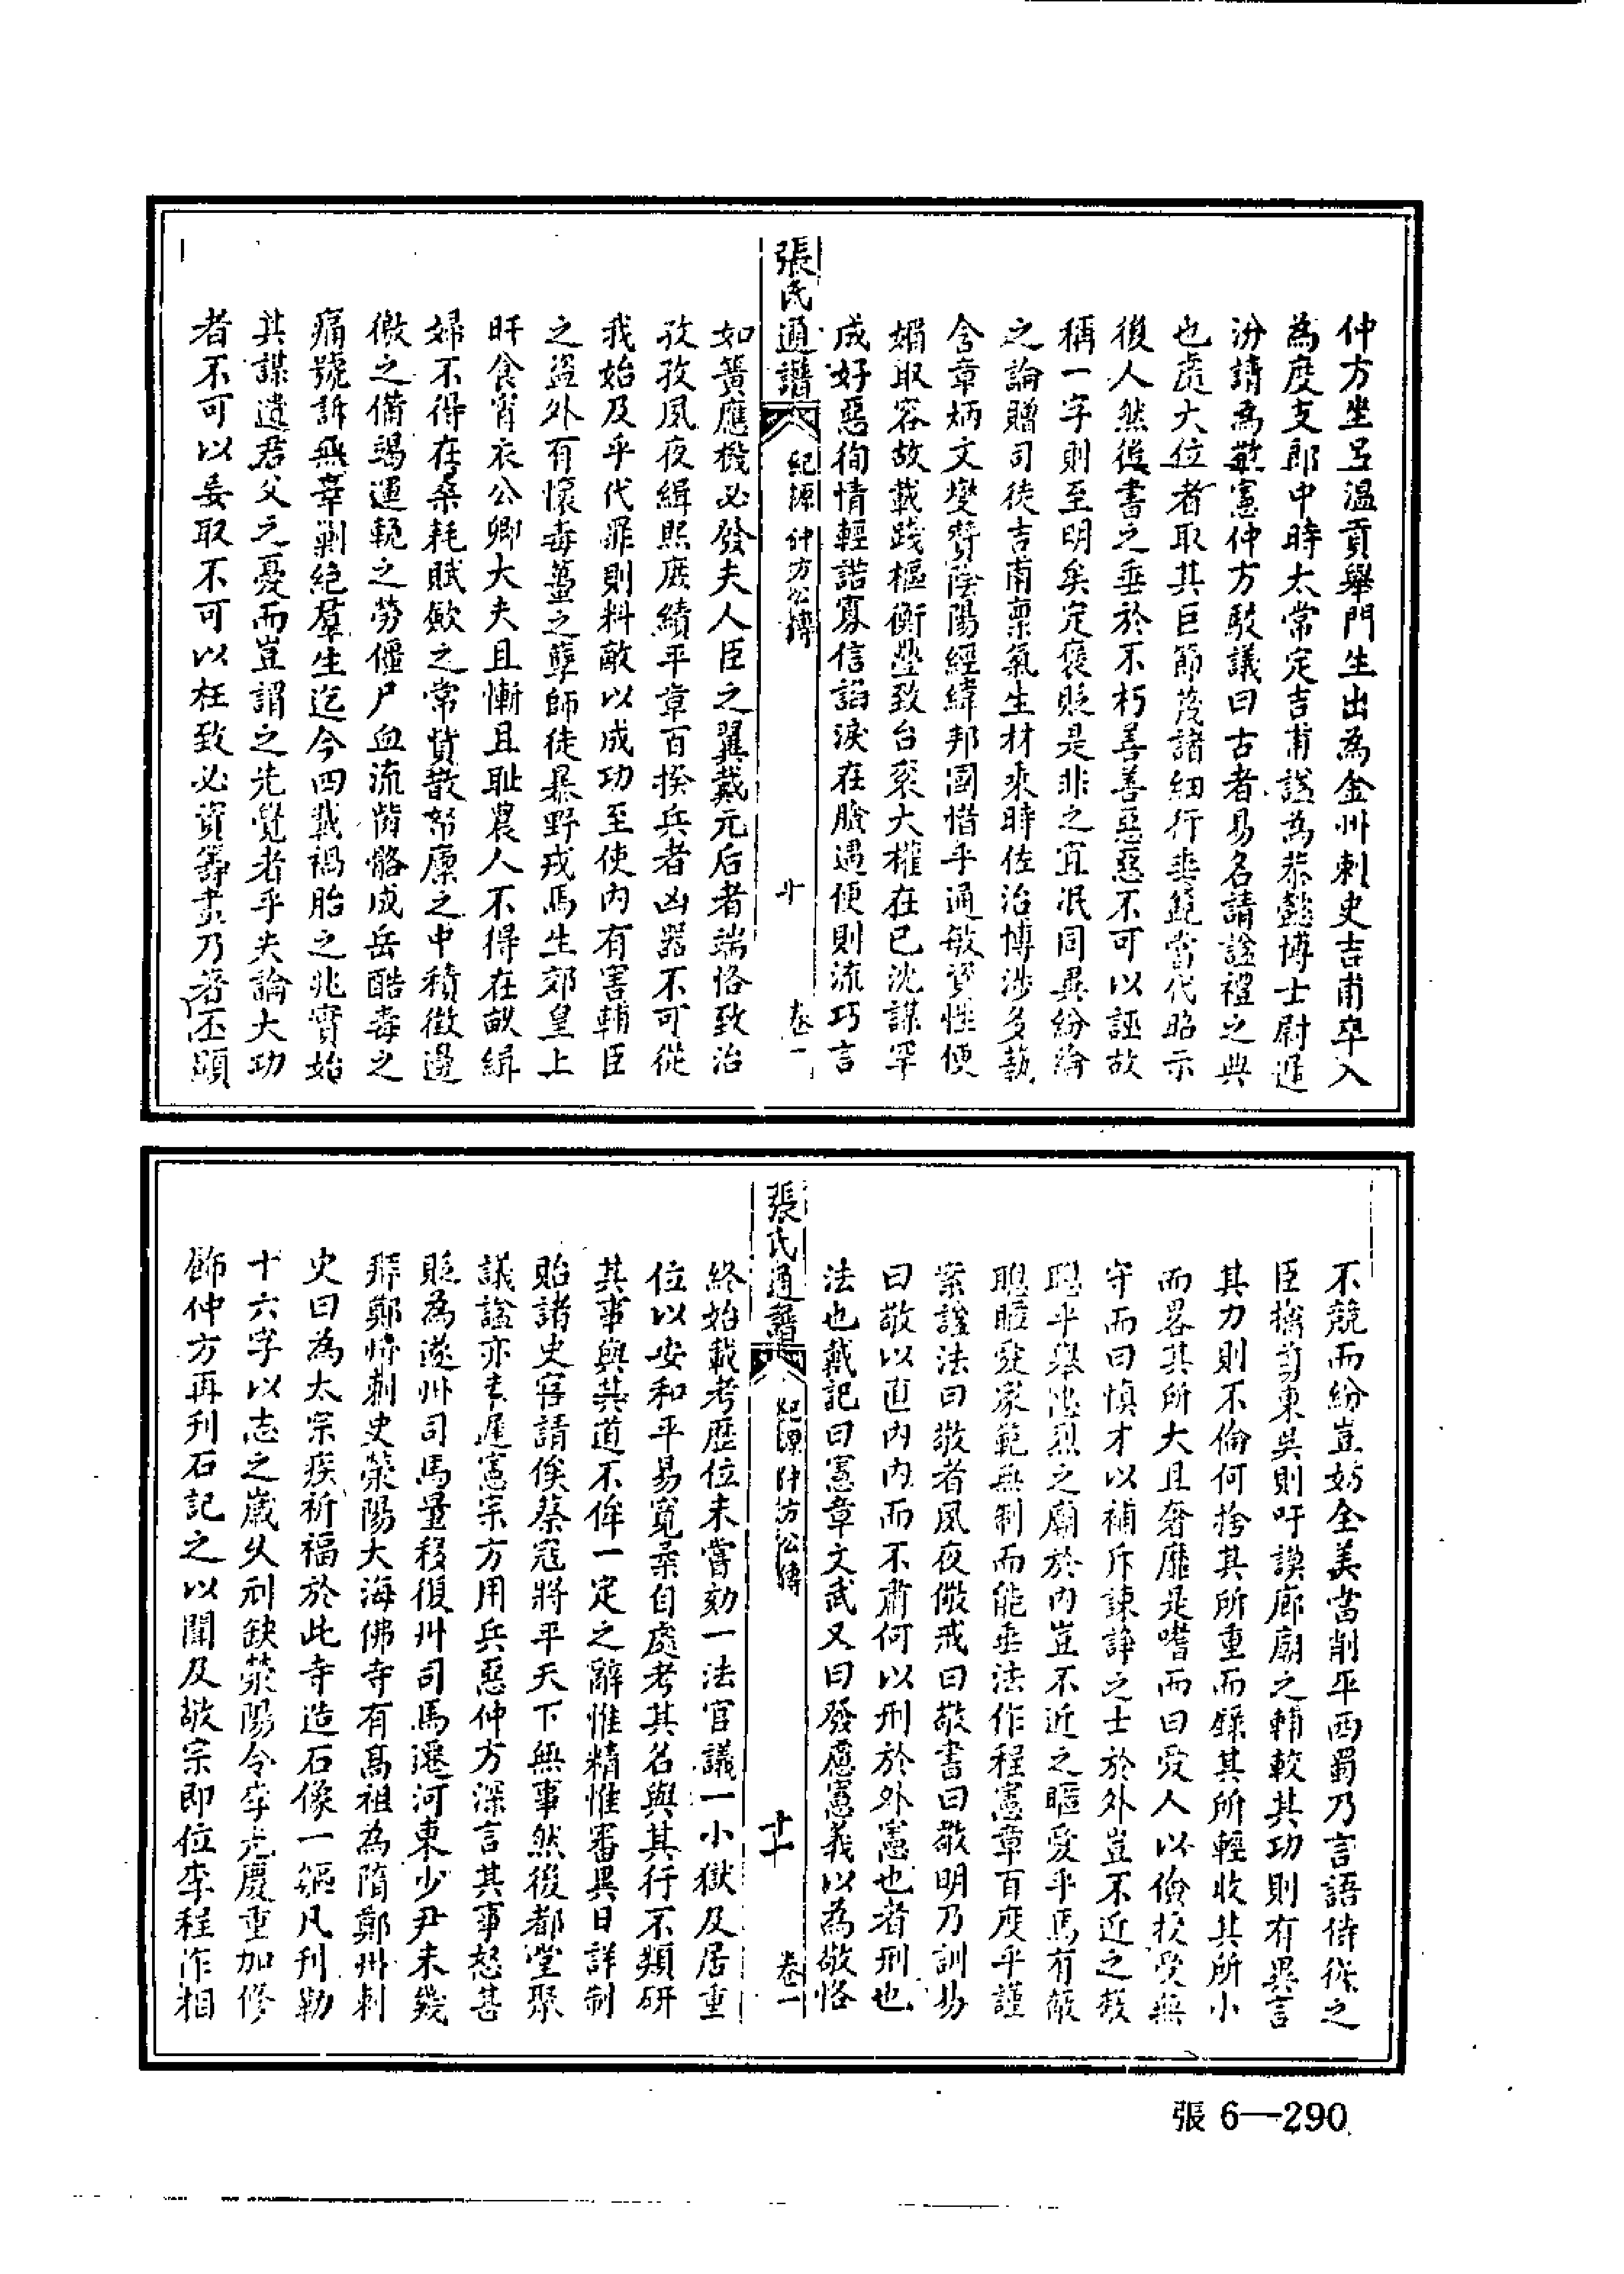 仲方坐呂溫貢舉門生出為金州刺史吉甫卒入
為度支郎中時太常定吉甫諡為恭懿博士尉遲
汾請為敬憲仲方駁議曰古者易名請諡禮之典
也處大位者取其巨節蔑諸細行垂範當代昭示
後人然後書之垂於不朽善善惡惡不可以誣故
稱一字則至明矣定褒貶是非之宜泯同異紛綸
之論贈司徒吉甫稟氣生材乘時佐治博涉多藝
含章炳文燮贊陰陽經緯邦國惜乎通敏資性便
媚取容故載踐樞衡疊致台袞大權在己沈謀罕
成好惡徇情輕諾寡信諂淚在臉遇便則流巧言
張氏通譜
紀源 仲方公傳
十
卷一
如簧應機必發夫人臣之翼戴元后者端恪致治
孜孜夙夜緝熙庶績平章百揆兵者凶器不可從
我始及乎伐罪則料敵以成功至使內有害輔臣
之盜外有懷毒蠆之孽師徒暴野戎馬生郊皇上
旰食宵衣公卿大夫且慚且恥農人不得在畝緝
婦不得在桑耗賦斂之常貲散帑廩之中積徵邊
徼之備竭運輓之勞僵尸血流胔骼成岳酷毒之
痛號訴無辜剿絕羣生迄今四載禍胎之兆實始
其謀遺君父之憂而豈謂之先覺者乎夫論大功
者不可以妄取不可以枉致必資籌畫乃著丕顯
不競而紛豈妨全美當削平西蜀乃言語侍從之
臣擒翦東吳則吁謨廊廟之輔較其功則有異言
其力則不倫何捨其所重而錄其所輕收其所小
而畧其所大且奢靡是嗜而曰愛人以儉授受無
守而曰慎才以補斥諫諍之士於外豈不近之蔽
聰乎舉忠烈之廟於內豈不近之暱愛乎焉有蔽
聰暱愛家範無制而能垂法作程憲章百度乎謹
案諡法曰敬者夙夜儆戒曰敬書曰敬明乃訓易
曰敬以直內內而不肅何以刑於外憲也者刑也
法也戴記曰憲章文武又曰發慮憲義以為敬恪
張氏通譜
紀源 仲方公傳
十一
卷一
終始載考歷位未嘗劾一法官議一小獄及居重
位以安和平易寬柔自處考其名與其行不類研
其事與其道不侔一定之辭惟精惟審異日詳制
貽諸史官請俟蔡寇將平天下無事然後都堂聚
議諡亦未遲憲宗方用兵惡仲方深言其事怒甚
貶為遂州司馬量移復州司馬遷河東少尹未幾
拜鄭州刺史滎陽大海佛寺有高祖為隋鄭州刺
史曰為太宗疾祈福於此寺造石像一軀凡刊勒
十六字以志之歲久刓缺滎陽令李光慶重加修
飾仲方再刊石記之以聞及敬宗即位李程作相
張 6—290